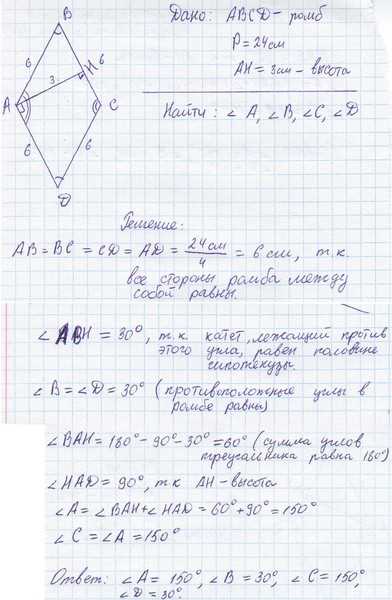 B
Дано: ABCD - ромб
P = 24 см
AH = 3 см - высота
Найти: ∠ A, ∠ B, ∠ C, ∠ D
6
H
6
3
A
C
6
6
D
Решение:
AB = BC = CD = AD = 24 см / 4 = 6 см, т.к.
все стороны ромба между
собой равны.
∠ ABH = 30°, т.к. катет, лежащий против
этого угла, равен половине
гипотенузы.
∠ B = ∠ D = 30° (противоположные углы в
ромбе равны)
∠ BAH = 180° - 90° - 30° = 60° (сумма углов
треугольника равна 180°)
∠ HAD = 90°, т.к AH - высота
∠ A = ∠ BAH + ∠ HAD = 60° + 90° = 150°
∠ C = ∠ A = 150°
Ответ: ∠ A = 150°, ∠ B = 30°, ∠ C = 150°,
∠ D = 30°.